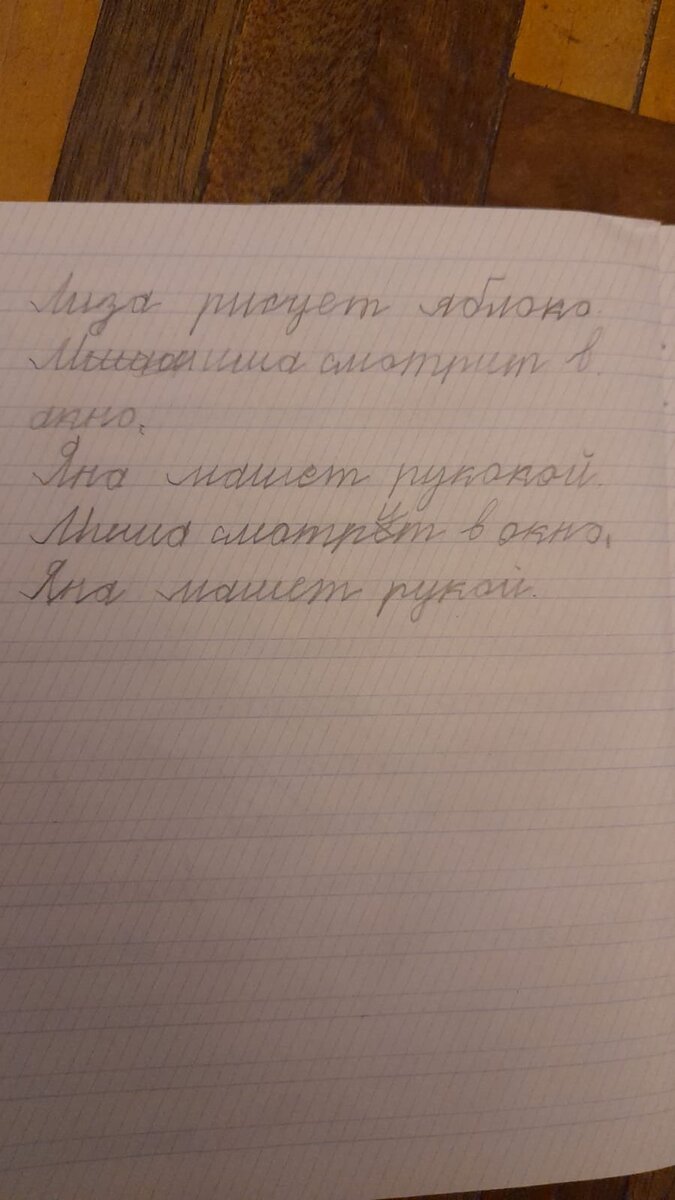 Лиза рисует яблоко.
миша смотрит в
акно.
Яна машет рукокой.
Миша смотрит в окно.
Яна машет рукой.